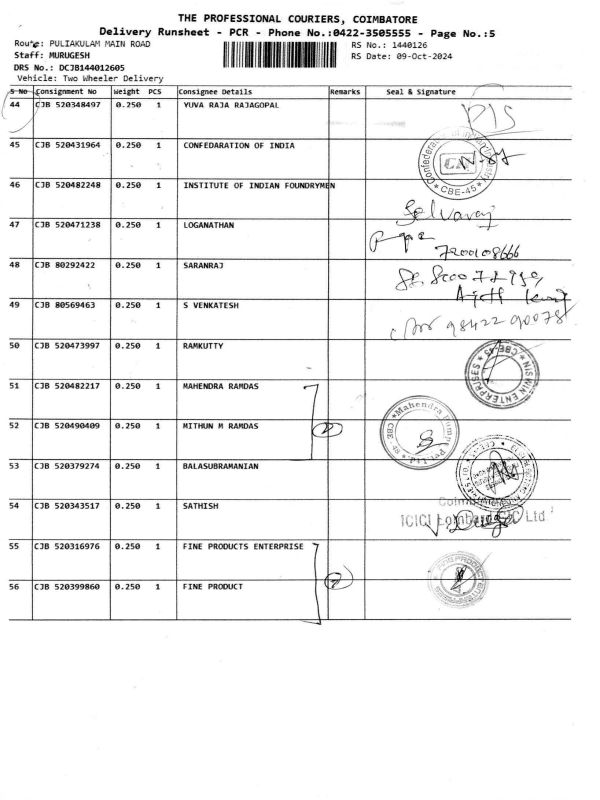 THE PROFESSIONAL COURIERS, COIMBATORE
Delivery Runsheet - PCR - Phone No.:0422-3505555 - Page No.:5
Route: PULIAKULAM MAIN ROAD
RS No.: 1440126
Staff: MURUGESH
RS Date: 09-Oct-2024
DRS No.: DCJB144012605
Vehicle: Two Wheeler Delivery
S No Consignment No Weight PCS Consignee Details Remarks Seal & Signature
44 CJB 520348497 0.250 1 YUVA RAJA RAJAGOPAL
45 CJB 520431964 0.250 1 CONFEDARATION OF INDIA
CBE-45
46 CJB 520482248 0.250 1 INSTITUTE OF INDIAN FOUNDRYMEN
Selvaraj
47 CJB 520471238 0.250 1 LOGANATHAN
7200108666
48 CJB 80292422 0.250 1 SARANRAJ
49 CJB 80569463 0.250 1 S VENKATESH
98422 90078
50 CJB 520473997 0.250 1 RAMKUTTY
NISWIN ENTERPRISES CBE-45
51 CJB 520482217 0.250 1 MAHENDRA RAMDAS
Mahendra Pumps Pvt. Ltd.
52 CJB 520490409 0.250 1 MITHUN M RAMDAS 2
53 CJB 520379274 0.250 1 BALASUBRAMANIAN
54 CJB 520343517 0.250 1 SATHISH
ICICI Lombard GIC Ltd
55 CJB 520316976 0.250 1 FINE PRODUCTS ENTERPRISE
56 CJB 520399860 0.250 1 FINE PRODUCT 2